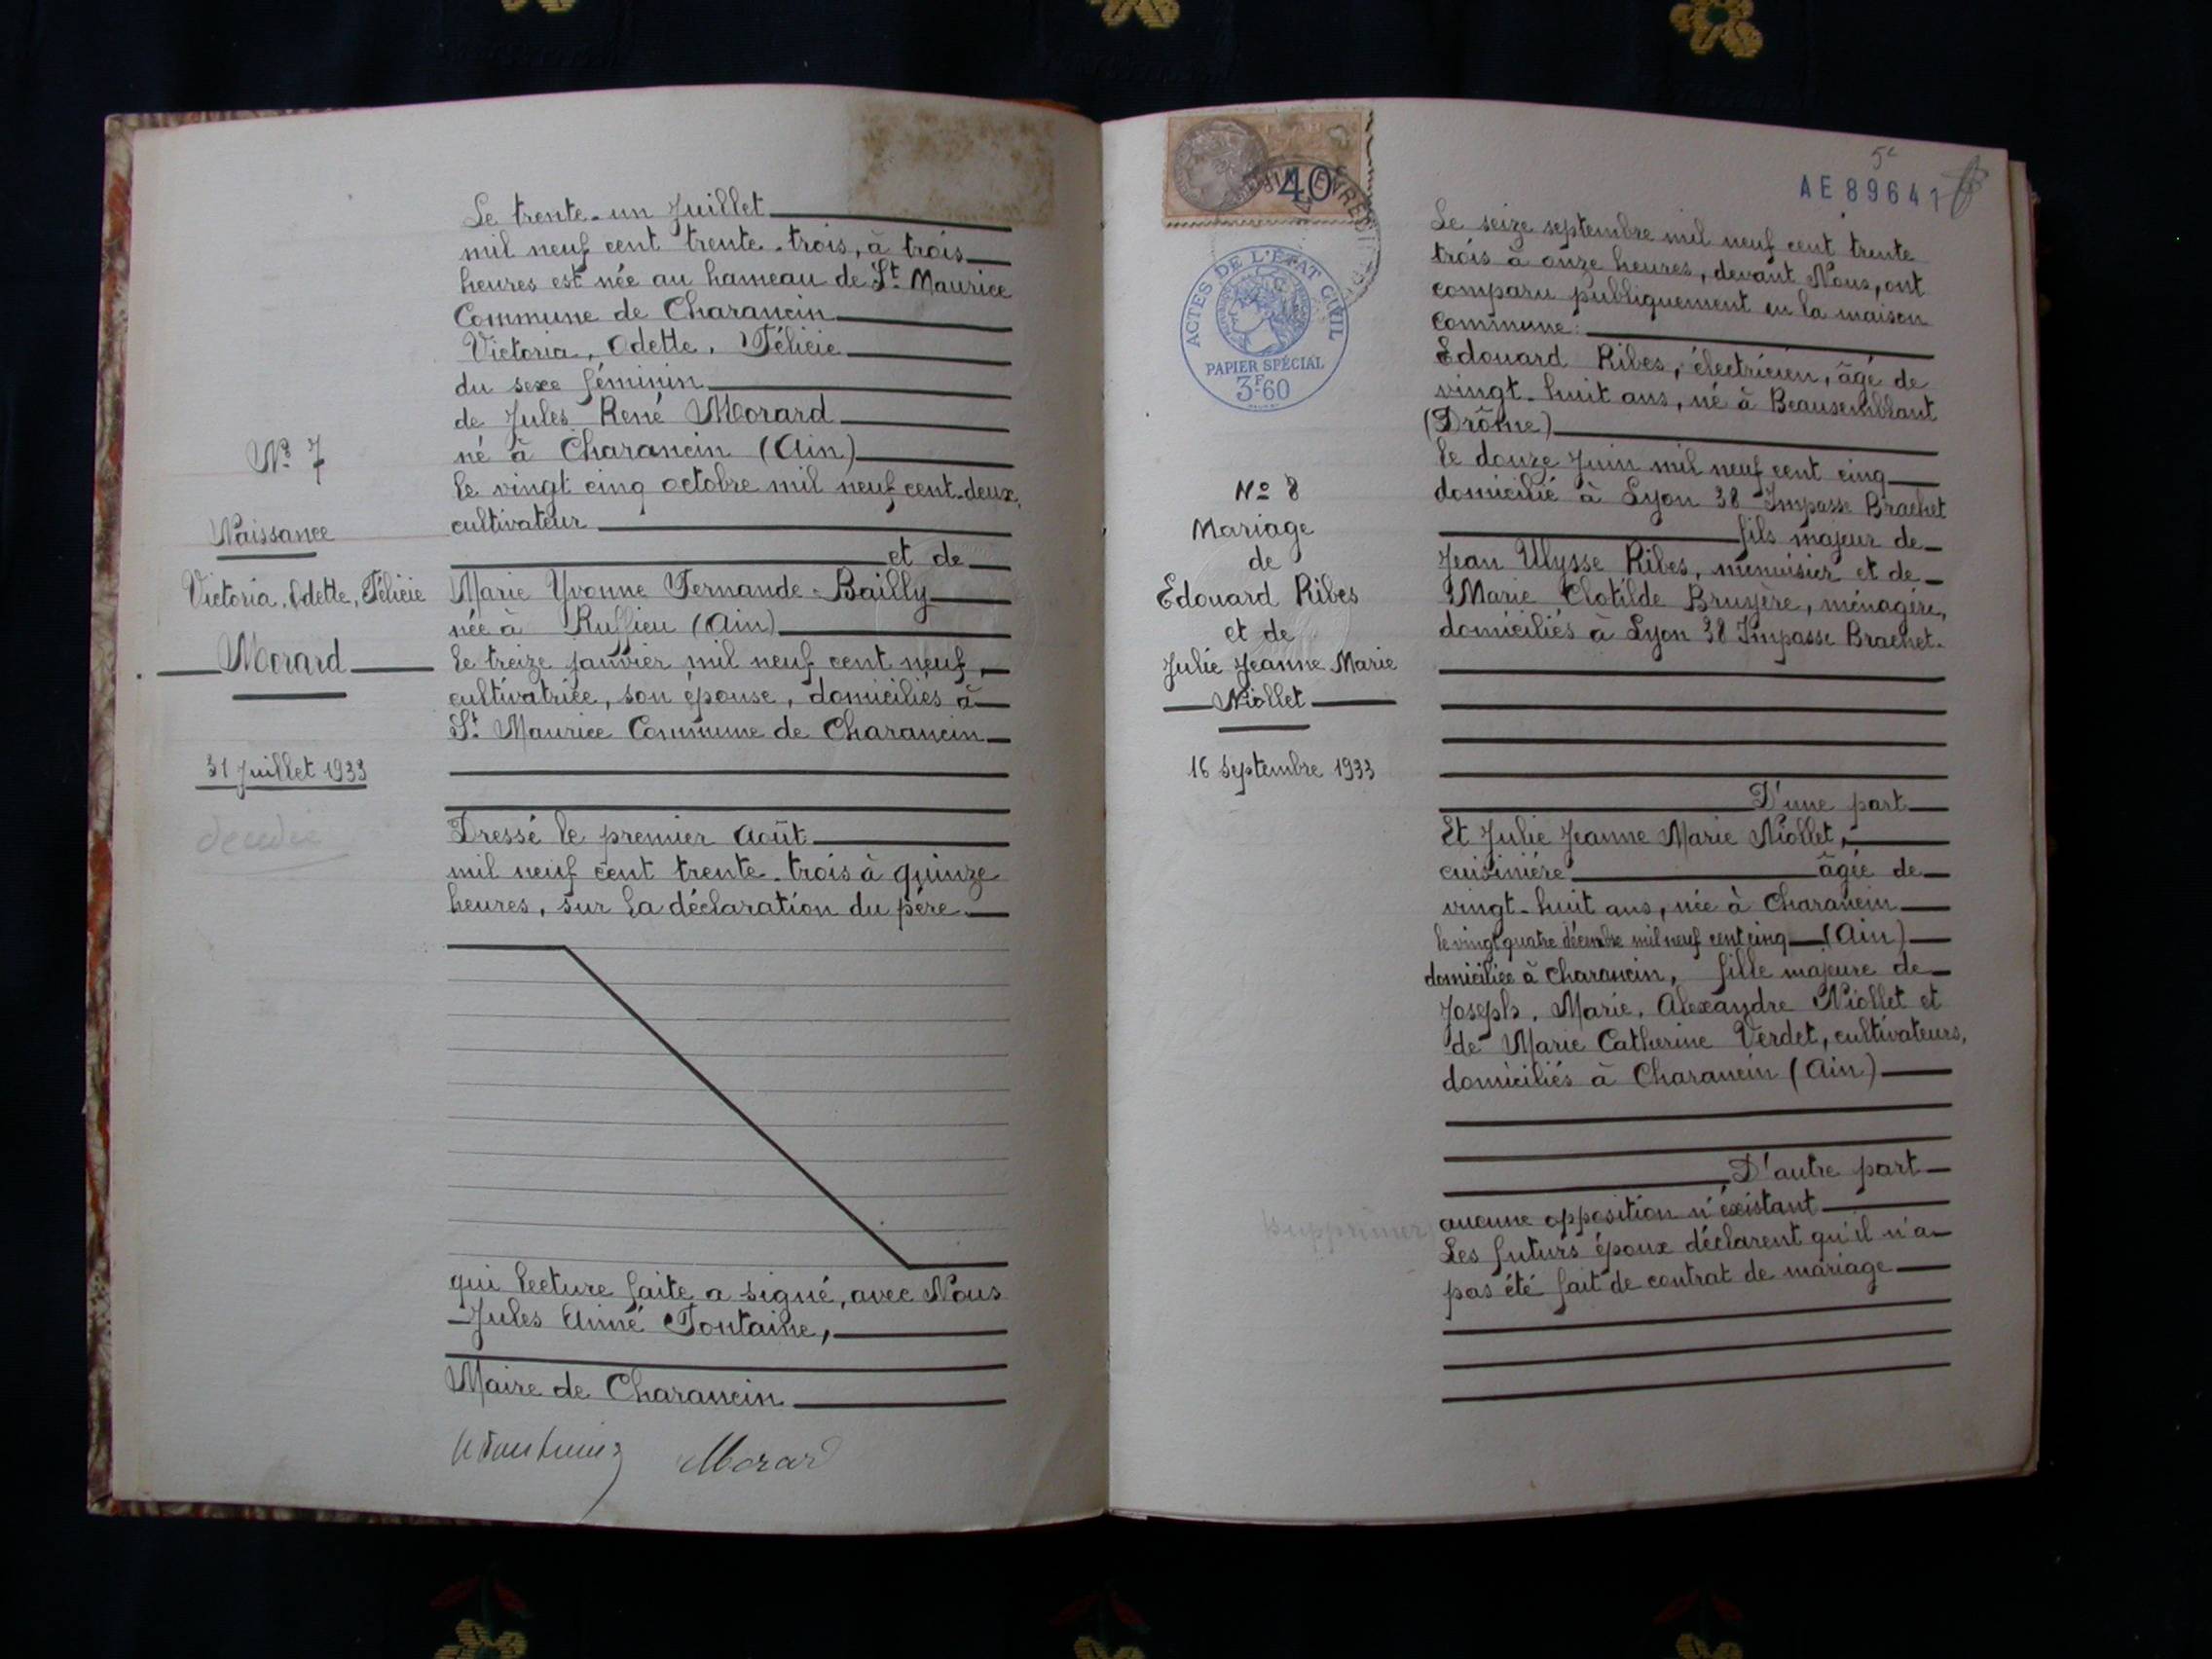 Le trente-un Juillet
mil neuf cent trente-trois, à trois
heures est née au hameau de St Maurice
Commune de Charancin
Victoria, Odette, Félicie
du sexe féminin
de Jules René Morard
né à Charancin (Ain)
le vingt cinq octobre mil neuf cent-deux,
cultivateur
et de
Marie Yvonne Fernande Bailly
née à Ruffieu (Ain)
le treize janvier mil neuf cent neuf,
cultivatrice, son épouse, domiciliés à
St Maurice Commune de Charancin
Dressé le premier Août
mil neuf cent trente-trois à quinze
heures, sur la déclaration du père
qui lecture faite a signé, avec Nous
Jules Aimé Fontaine,
Maire de Charancin
Morard
No 7
Naissance
Victoria, Odette, Félicie
Morard
31 Juillet 1933
decedée
5e
AE 89641
40c
ACTES DE L'ÉTAT CIVIL
PAPIER SPÉCIAL
3F60
No 8
Mariage
de
Edouard Ribes
et de
Julie Jeanne Marie
Niollet
16 Septembre 1933
Le seize septembre mil neuf cent trente
trois à onze heures, devant Nous, ont
comparu publiquement en la maison
commune:
Edouard Ribes, électricien, âgé de
vingt-huit ans, né à Beausemblant
(Drôme)
le douze Juin mil neuf cent cinq
domicilié à Lyon 38 Impasse Brachet
fils majeur de
Jean Ulysse Ribes, menuisier et de
Marie Clotilde Bruyère, ménagère,
domiciliés à Lyon 38 Impasse Brachet.
D'une part
Et Julie Jeanne Marie Niollet,
cuisinière âgée de
vingt-huit ans, née à Charancin
le vingt quatre décembre mil neuf cent cinq (Ain)
domiciliée à Charancin, fille majeure de
Joseph, Marie, Alexandre Niollet et
de Marie Catherine Verdet, cultivateurs,
domiciliés à Charancin (Ain)
D'autre part
supprimer
aucune opposition n'éxistant
Les futurs époux déclarent qu'il n'a
pas été fait de contrat de mariage